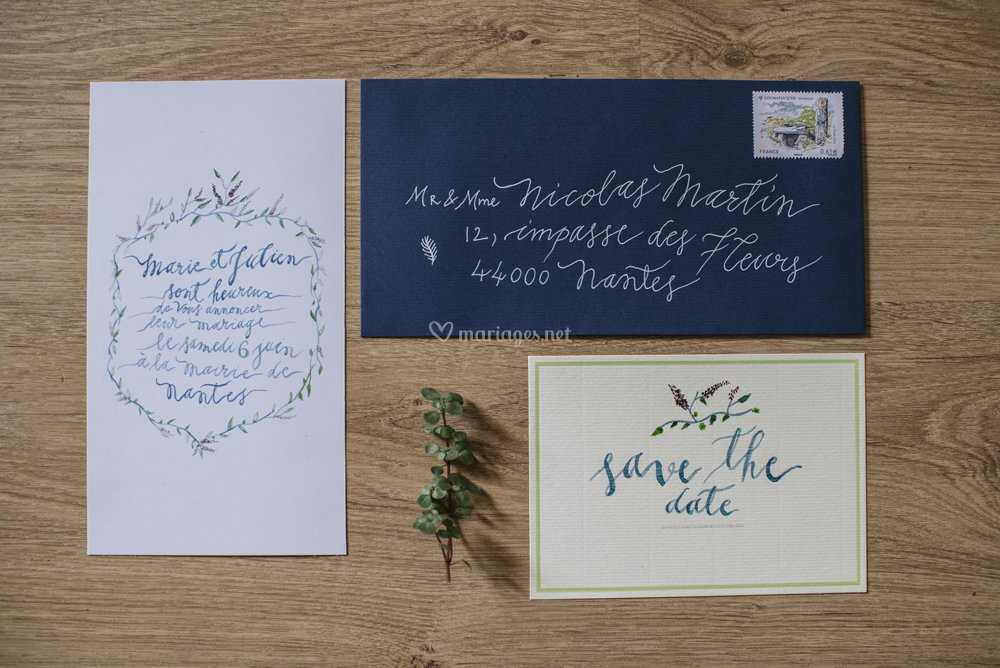 Marie et Julien
sont heureux
de vous annoncer
leur mariage
le samedi 6 juin
à la Mairie de
Nantes
FRANCE
0,61€
Mr & Mme Nicolas Martin
12, impasse des Fleurs
44000 Nantes
mariages.net
save the
date